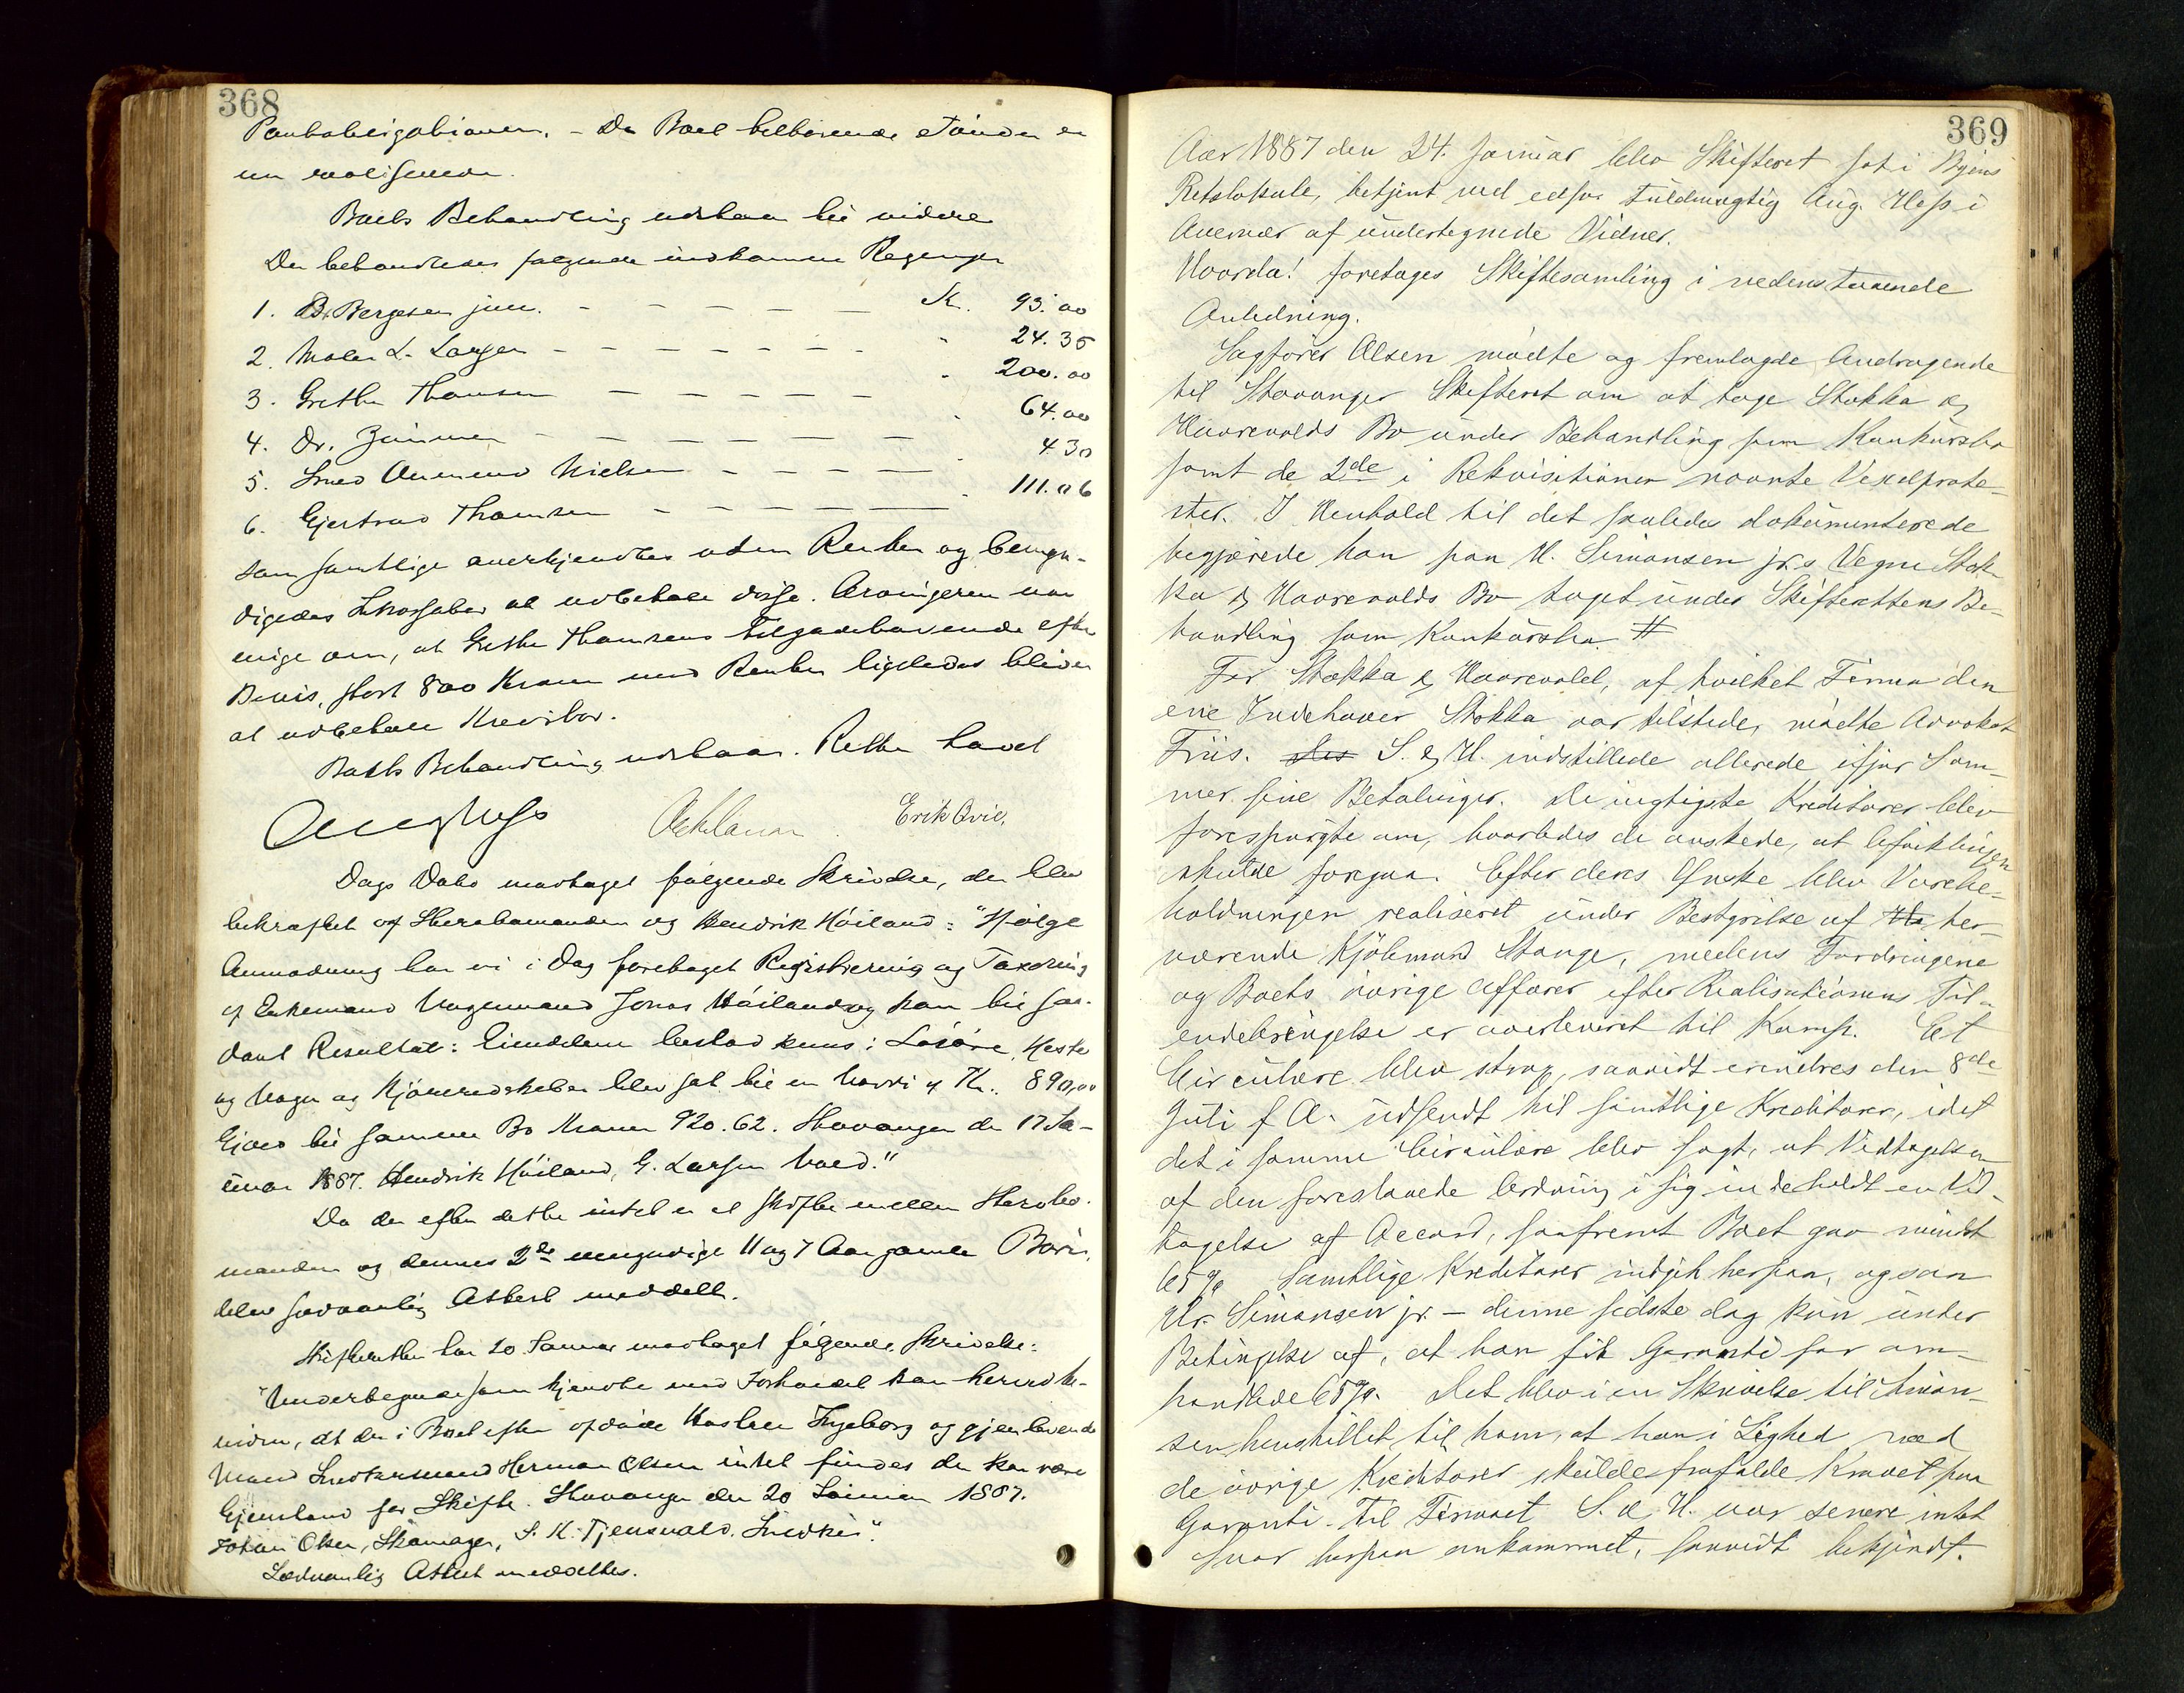 368
Pantobligationen. - De Boet tilhørende er
un realiserede.
Boets Behandling udstaar til videre
Der behandledes følgende indkomne Regninger
1. B. Bergesen jun. - - - - - Kr. 93.00
2. Maler L. Larsen - - - - - - - " 24.35
3. Grethe Thomsen - - - - - " 200.00
4. Dr. Zimmer - - - - - - - " 64.00
5. Smed Nielsen - - - - " 4 30
6. Gjertrud Thomsen - - - - - " 111.06
som samtlige anerkjendtes uden Renter og bemyn-
digedes Inkassator at udbetale disse. Arvingerne var
enige om, at Grethe Thomsens Tilgodehavende efter
Bevis, stort 800 Kroner med Renter ligeledes bliver
at udbetale Kreditor.
Boets Behandling udstaar. Retten hævet
Aug Hess Erik Qvie.
Dags Dato modtaget følgende Skrivelse, der blev
bekræftet af Sterbomanden og Hendrik Høiland: "Ifølge
Anmodning har vi i Dag foretaget Registrering og Taxering
af Enkemand Vognmand Jonas Høiland og kan til saa-
dant Resultat: Eiendelene bestod kuns i Løsøre, Heste
og Vogn og Kjøreredskaber blev sat til en Værdi af Kr. 890,00
Gjæld til samme Bo Kroner 920.62. Stavanger den 17 Ja-
nuar 1887. Hendrik Høiland, G. Larsen Vold."
Da der efter dette intet er at skifte mellem Sterbo-
manden og dennes 2de umyndige 11 og 7 Aar gamle Børn,
blev sedvanlig Attest meddelt.
Skifteretten har 20 Januar modtaget følgende Skrivelse:
"Undertegnede som kjendte med Forholdet kan herved be-
vidne, at der i Boet efter afdøde Hustru Ingeborg og gjenlevende
Mand Snedkersvend Herman Olsen intet findes der kan være
Gjenstand for Skifte. Stavanger den 20 Januar 1887.
Johan Olsen, Skomager, S. K. Tjensvold. Snedker."
Sedvanlig Attest meddeltes.
369
Aar 1887 den 24. Januar blev Skifteret sat i Byens
Retslokale, betjent ved edsv. Fuldmægtig Aug. Hess i
Overvær af undertegnede Vidner.
Hvorda! foretages Skiftesamling i nedenstaaende
Anledning.
Sagfører Olsen mødte og fremlagde Andragende
til Stavanger Skifteret om at tage Stokka &
Haarevolds Bo under Behandling som Konkursbo
samt de 2de i Rekvisitionen nævnte Vexelprote-
ster. I Henhold til det saaledes dokumenterede
begjærede han paa H. Simonsen jr.s Vegne Stok-
ka & Haarevolds Bo taget under Skifterettens Be-
handling som Konkursbo. #
For Stokka & Haarevold, af hvilket Firma den
ene Indehaver Stokka var tilstede, mødte Advokat
Friis. S. & H. indstillede allerede ifjor Som-
mer sine Betalinger. De vigtigste Kreditorer blev
forespurgte om, hvorledes de ønskede, at Afviklingen
skulde foregaa. Efter deres Ønske blev Varebe-
holdningen realiseret under Bestyrelse af her-
værende Kjøbmand Stange, medens Fordringene
og Boets øvrige Affærer efter Realisationens Til-
endebringelse er overleveret til Kamp. Et
Circulære blev strax, saavidt erindres den 8de
Juli f A. udsendt til samtlige Kreditorer, idet
det i samme Circulære blev sagt, at Vedtagelsen
af den foreslaaede Ordning i sig indeholdt en Ved-
tagelse af Accord, saafremt Boet gav mindst
65 % Samtlige Kreditorer indgik herpaa, ogsaa
Hr. Simonsen jr. - denne sidste dog kun under
Betingelse af, at han fik Garanti for om-
handlede 65 %. Det blev i en Skrivelse til Simon-
sen henstillet til ham, at han i Lighed med
de øvrige Kreditorer skulde frafalde Kravet paa
Garanti. Til Firmaet S. & H. var senere intet
Svar herpaa ankommet, saavidt bekjendt.